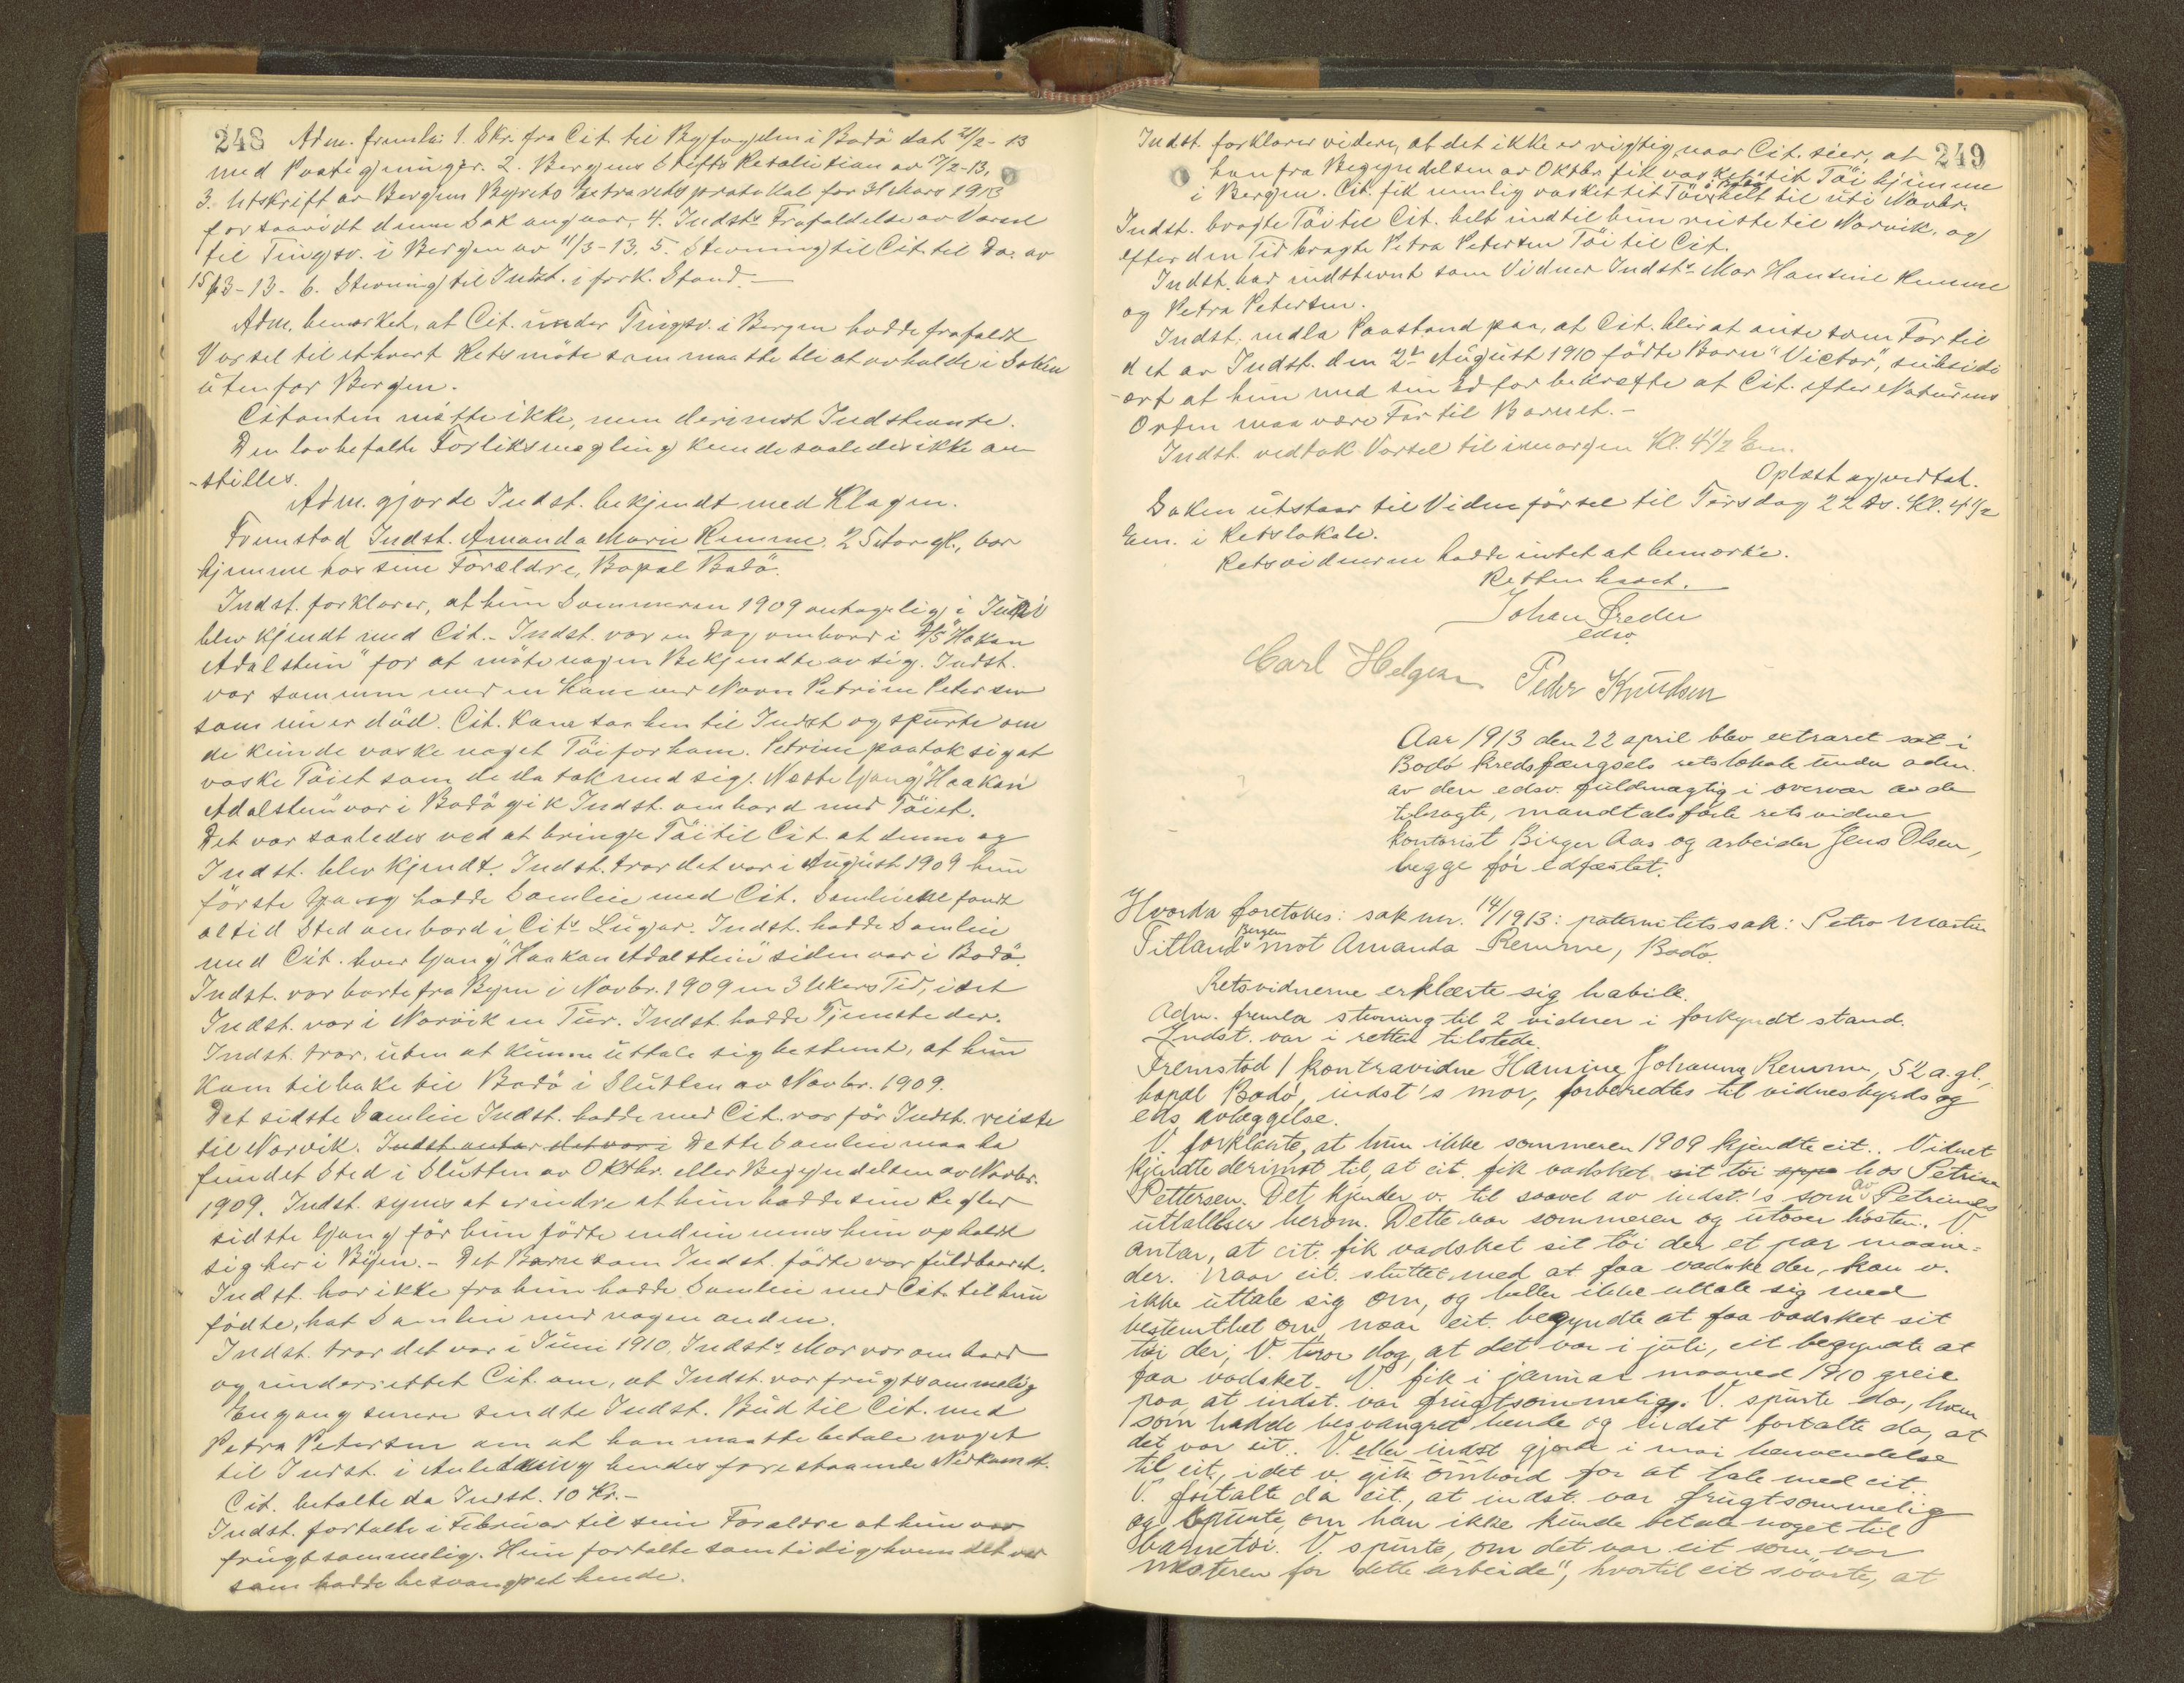 248
Adm. fremla: 1. Skr. fra Cit. til Byfogden i Bodö dat 21/2-13
med Paategninger. 2. Bergens Stifts Resolution av 17/2-13,
3. Utskrift av Bergens Byrets Extraretsprotokol for 31 Mars 1913
forsaavidt denne Sak angaar, 4. Indsts Frafaldelse av Varsel
til Tingsv. i Bergen av 11/3-13. 5. Stevning til Cit. til Do. av
15/3-13- 6. Stevning til Indst. i fork. Stand.-
Adm. bemerket, at Cit. under Tingsv. i Bergen hadde frafaldt
Varsel til ethvert Retsmöte som maatte bli at avholde i Saken
utenfor Bergen.
Citanten mötte ikke, men derimot Indstevnte.
Den lovbefalte Forliksmegling kunde saaledes ikke an-
-stilles.
Adm. gjorde Indst. bekjendt med Klagen.
Fremstod Indst. Amanda Marie Remme. 25 Aar gl., bor
hjemme hos sine Forældre, Bopæl Bodö.
Indst. forklarer, at hun Sommeren 1909 antagelig i Juni
blev kjendt med Cit.- Indst. var en Dag ombord i D/S "Hakon
Adalstein" for at möte nogen Bekjendte av sig. Indst.
var sammen med en Kone ved Navn Petrine Petersen
som nu er död. Cit. kom saa hen til Indst og spurte om
de kunde vaske noget Töi for ham. Petrine paatok sig at
vaske Töiet som de da tok med sig. Næste Gang "Haakon
Adalstein" var i Bodö gik Indst. ombord med Töiet.
Det var saaledes ved at bringe Töi til Cit. at denne og
Indst. blev kjendt. Indst. tror det var i August 1909 hun
förste Gang hadde Samleie med Cit. Samleiene fandt
altid Sted ombord i Cits Lugar. Indst. hadde Samleie
med Cit. hver Gang "Haakon Adalstein" siden var i Bodö.
Indst. var borte fra Byen i Novbr. 1909 en 3 Ukers Tid, idet
Indst. var i Narvik en Tur. Indst. hadde Tjeneste der.
Indst. tror, uten at kunne uttale sig bestemt, at hun
kom tilbake til Bodö i Slutten av Novbr. 1909.
Det sidste Samleie Indst. hadde med Cit. var för Indst. reiste
til Narvik. Indst. antar det var i Dette Samleie maa ha
fundet Sted i Slutten av Oktbr. eller Begyndelsen av Novbr.
1909. Indst. synes at erindre at hun hadde sine Regler
sidste Gang för hun födte endnu mens hun opholdt
sig her i Byen.- Det Barn som Indst. födte var fuldbaaret.
Indst. har ikke fra hun hadde Samleie med Cit. til hun
födte, hat Samleie med nogen anden.
Indst. tror det var i Juni 1910. Indsts Mor var ombord
og underrettet Cit. om, at Indst. var frugtsommelig
Engang senere sendte Indst. Bud til Cit. med
Petra Petersen om at han maatte betale noget
til Indst. i Anledning hendes forestaaende Nedkomst.
Cit. betalte da Indst. 10 Kr.-
Indst. fortalte i Februar til sine Forældre at hun var
frugtsommelig. Hun fortalte samtidig hvem det var
som hadde besvangret hende.
249
Indst. forklarer videre, at det ikke er rigtig naar Cit. sier, at
han fra Begyndelsen av Oktbr. fik vasket sit Töi hjemme
i Bergen. Cit. fik nemlig vasket sit Töi i Bodö helt til uti Novbr.
Indst. bragte Töi til Cit. helt indtil hun reiste til Narvik. og
efter den Tid bragte Petra Petersen Töi til Cit.
Indst. har indstevnt som Vidner Indsts Mor Hansine Remme
og Petra Petersen.
Indst. nedla Paastand paa, at Cit. blir at anse som Far til
det av Indst. den 2. August 1910 födte Barn "Victor", subsidi
-ært at hun med sin Ed for bekræfte at Cit. efter Naturens
Orden maa være Far til Barnet.-
Indst. vedtok Varsel til imorgen Kl. 4 1/2 Em.
Oplæst og vedtat.
Saken utstaar til Vidneförsel til Tirsdag 22 ds. Kl. 4 1/2
Em. i Retslokale.
Retsvidnerne hadde intet at bemerke.
Retten hævet.
Johan Breder
edsv.
Carl Helgesen Peder Knudsen
Aar 1913 den 22 april blev extraret sat i
Bodö kredsfængsels retslokale under adm.
av den edsv. fuldmægtig i overvær av de
tilsagte, mandtalsförte retsvidner
kontorist Birger Aas og arbeider Jens Olsen,
begge för edfæstet.
Hvorda foretokes: sak nr. 14/1913: paternitetssak: Petro Martin
Titland Bergen mot Amanda Remme, Bodö.
Retsvidnerne erklærte sig habile.
Adm. fremla stevning til 2 vidner i forkyndt stand.
Indst. var i retten tilstede.
Fremstod 1 kontravidne Hansine Johanna Remme, 52 a. gl.,
bopæl Bodö, indst's mor, forberedtes til vidnesbyrds og
eds avlæggelse.
V. forklarte, at hun ikke sommeren 1909 kjendte cit.. Vidnet
kjendte derimot til, at cit. fik vadsket sit töi hos Petrine
Pettersen. Det kjender v. til saavel av indst.'s som av Petrines
uttalelser herom. Dette var sommeren og utover hösten. V.
antar, at cit. fik vadsket sit töi der et par maane-
der. Naar cit. sluttet med at faa vadske der, kan v.
ikke uttale sig om, og heller ikke uttale sig med
bestemthet om naar cit. begyndte at faa vadsket sit
töi der; V. tror dog, at det var i juli, cit begyndte at
faa vadsket. V. fik i januar maaned 1910 greie
paa, at indst. var frugtsommelig. V. spurte da, hvem
som hadde besvangret hende og indst fortalte da, at
det var cit.. V. eller indst gjorde i mai henvendelse
til cit., idet v. gik ombord for at tale med cit..
V. fortalte da cit., at indst. var frugtsommelig
og spurte, om han ikke kunde betale noget til
barnetöi. V. spurte, om det var cit som var
"mesteren for dette arbeide", hvortil cit svarte, at